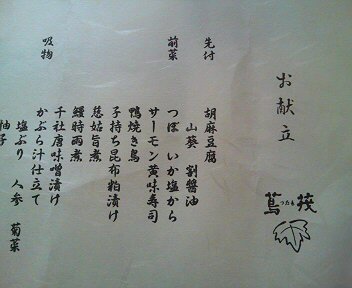 お献立
蔦茂
つたも
先付
胡麻豆腐
山葵 割醤油
前菜
つぼ いか塩から
サーモン黄味寿司
鴨焼き鳥
子持ち昆布粕漬け
慈姑旨煮
鰻時雨煮
千社唐味噌漬け
吸物
かぶら汁仕立て
塩ぶり 人参 菊菜
柚子